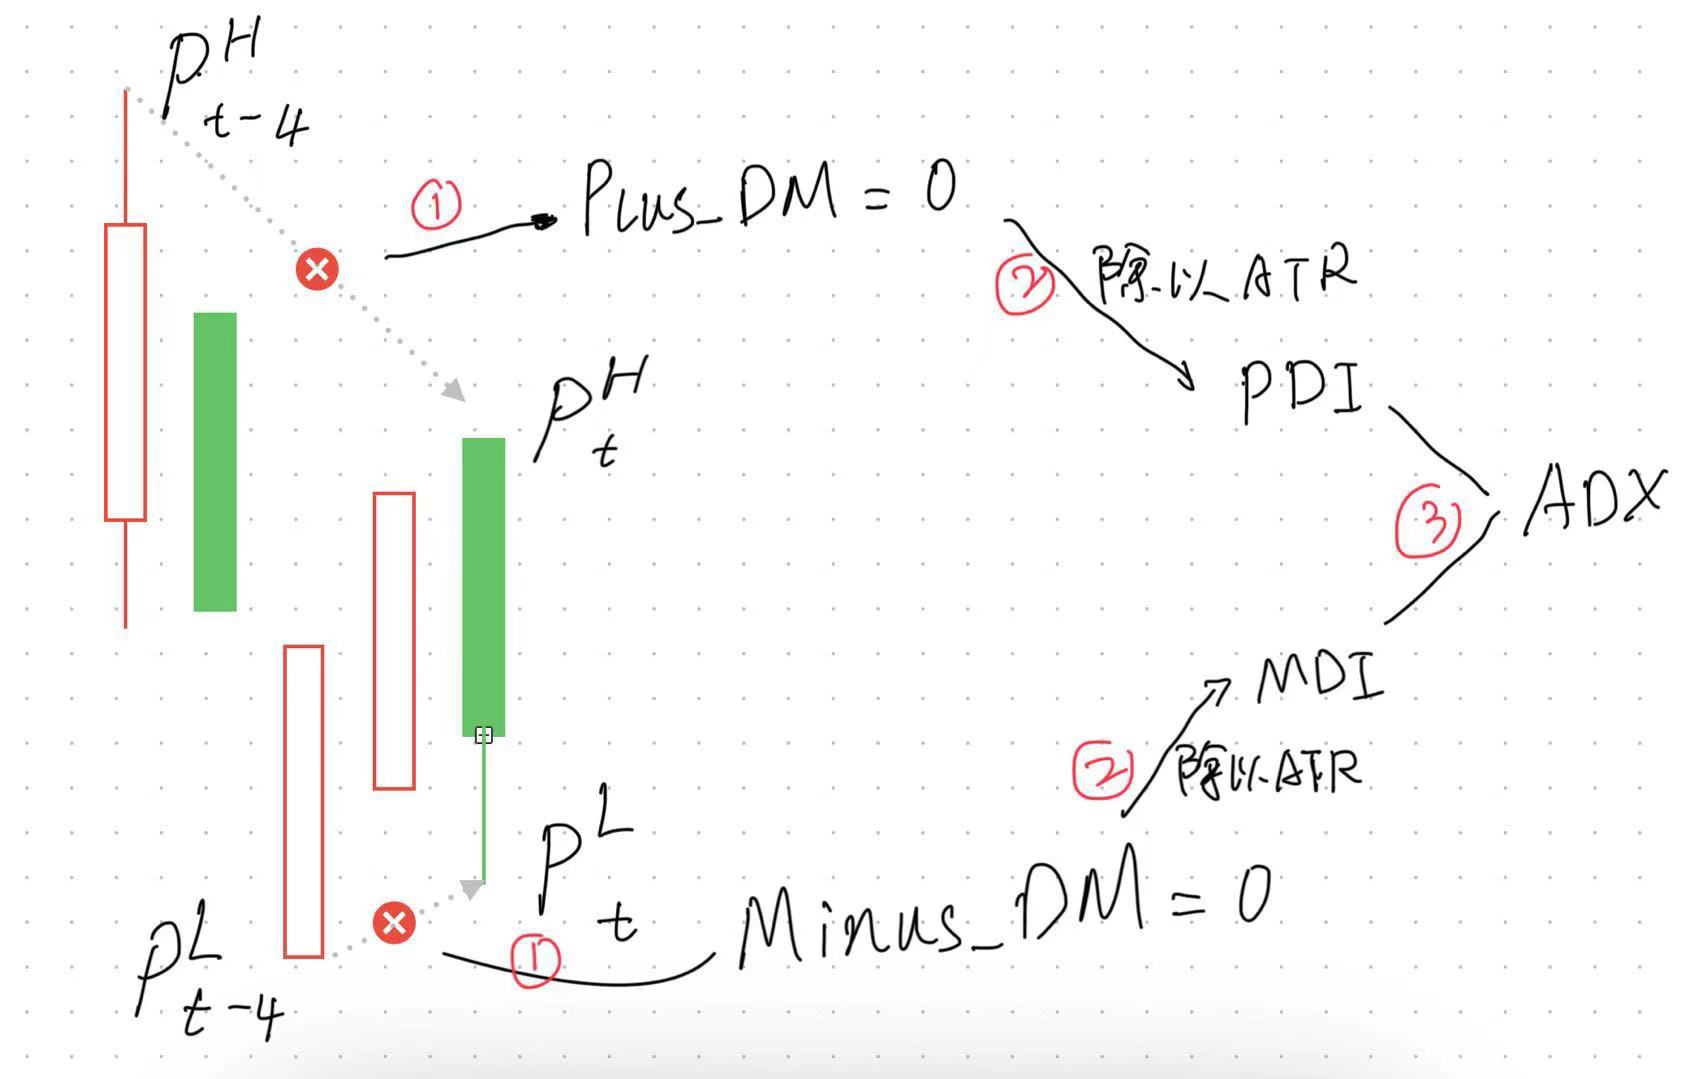 P^H_{t-4}
① Plus_DM = 0
② 除以ATR
PDI
P^H_t
③ ADX
MDI
② 除以ATR
P^L_t
① Minus_DM = 0
P^L_{t-4}